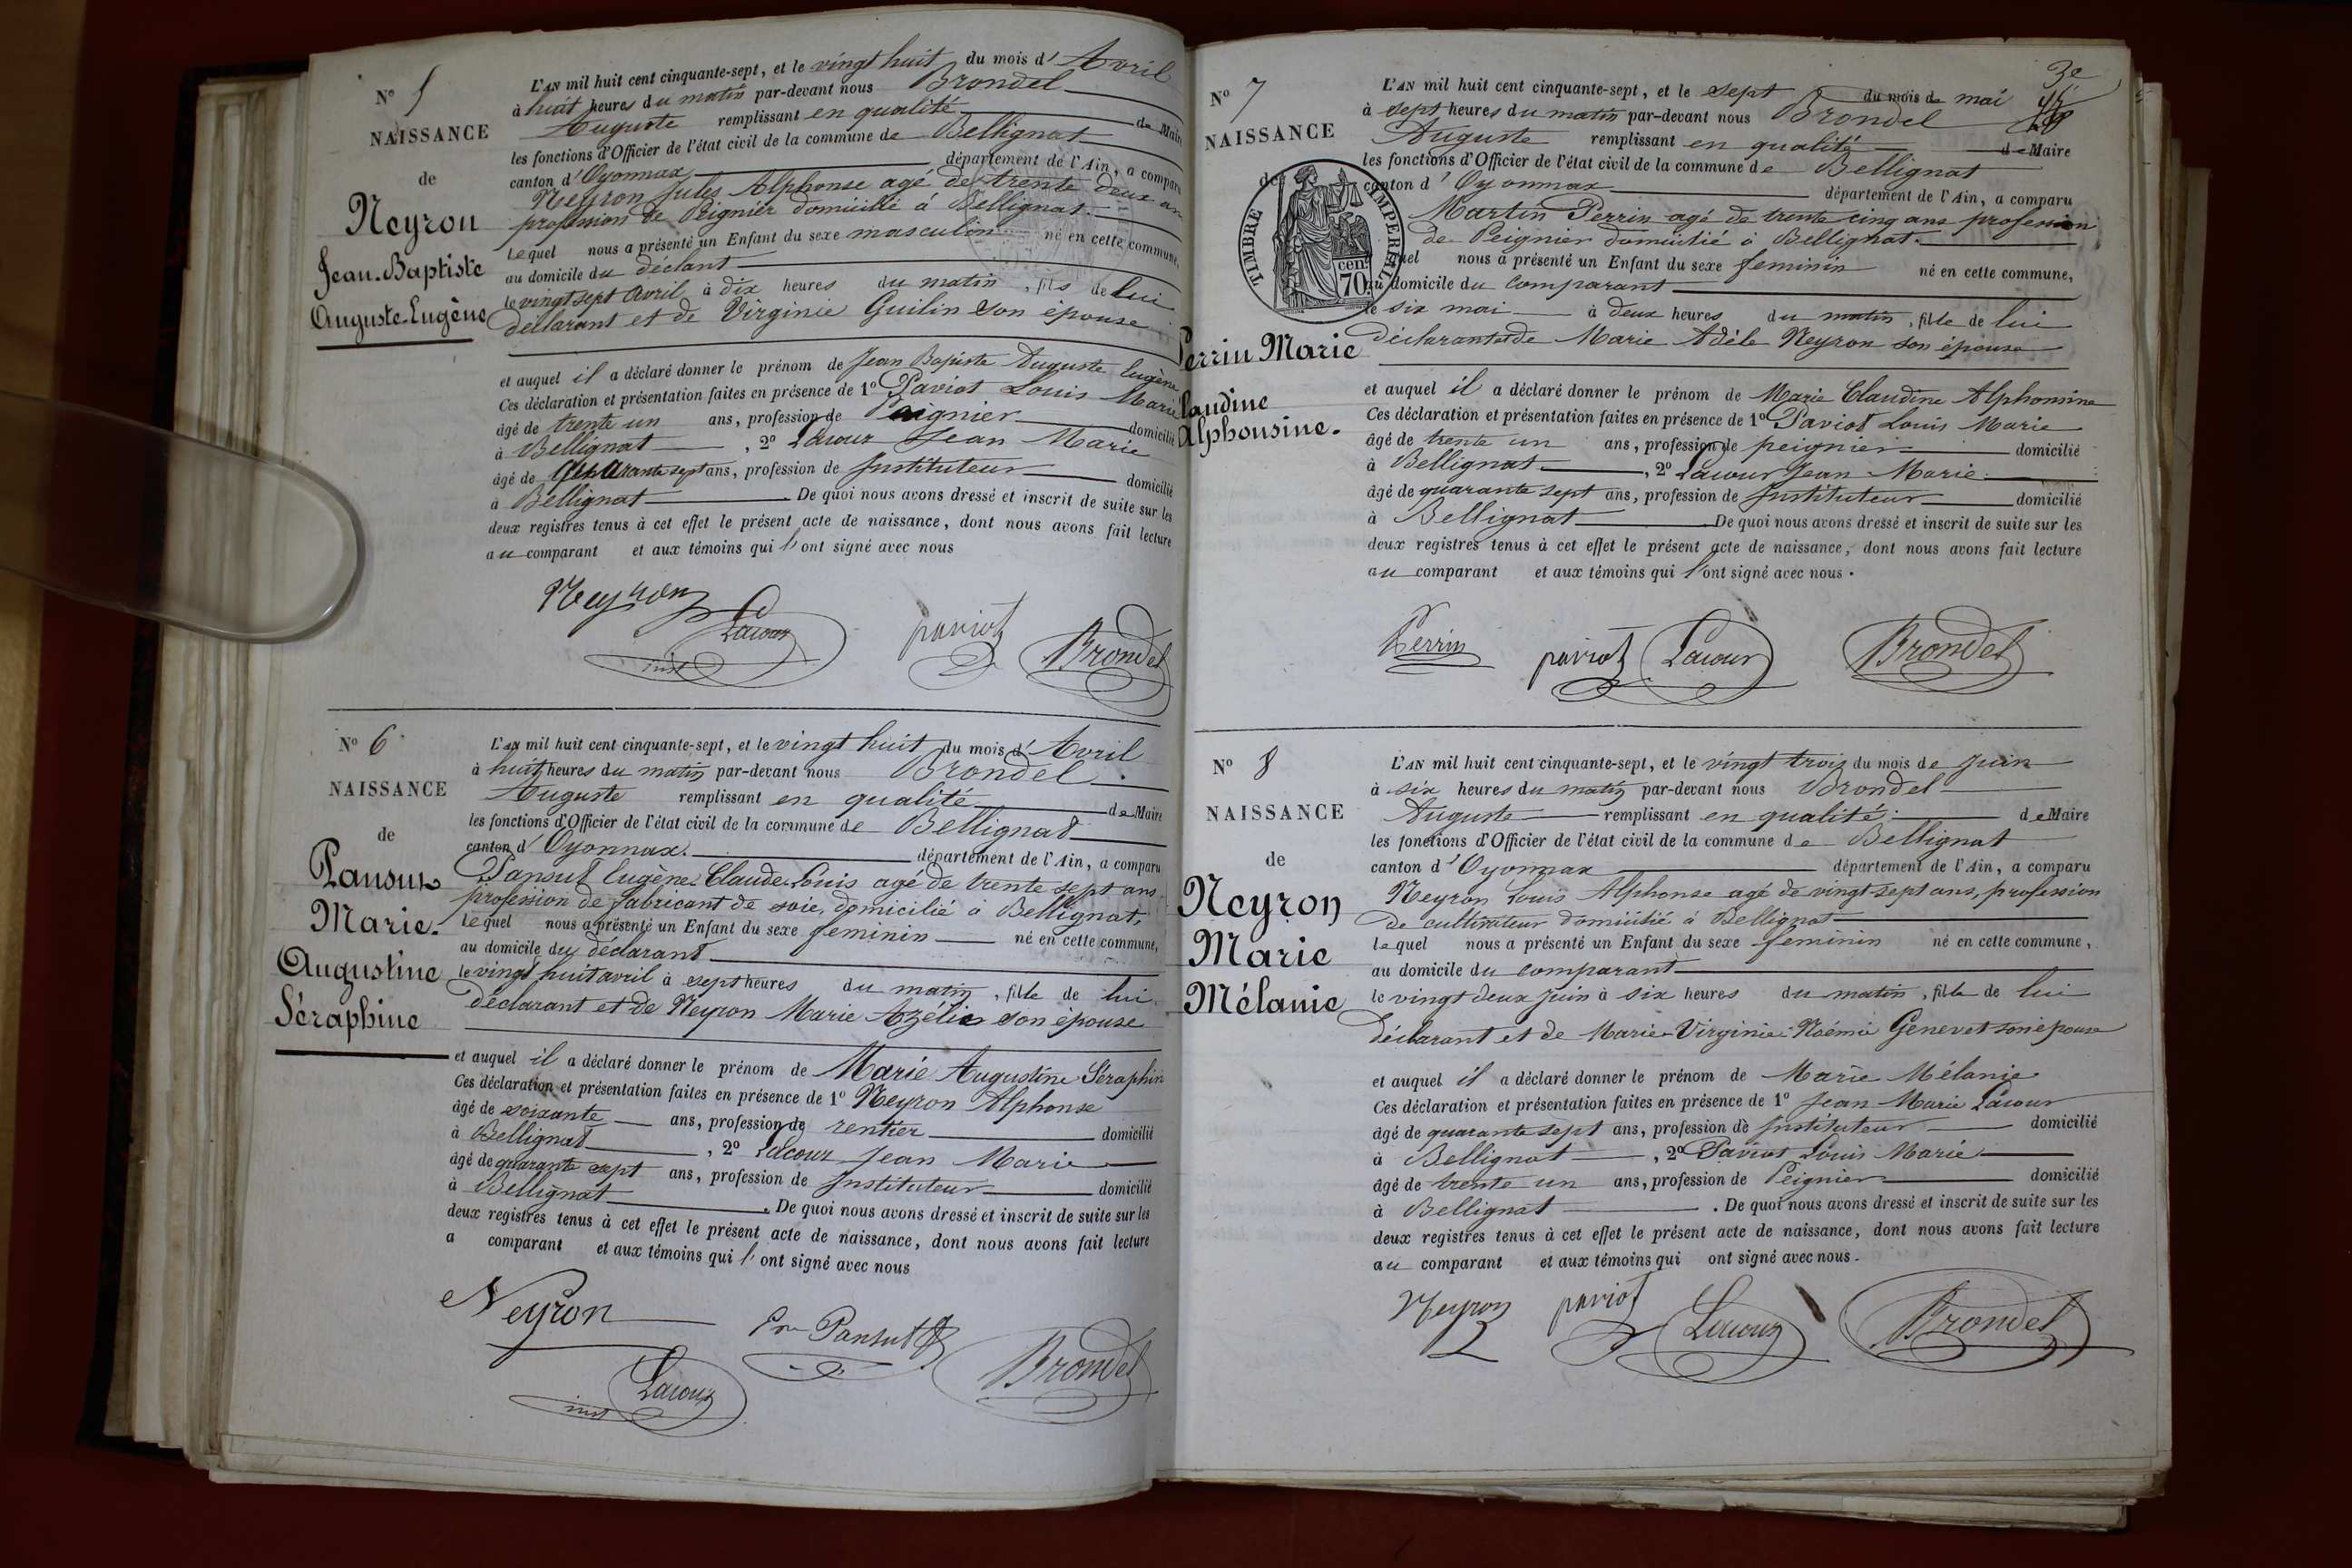 Nº 5
NAISSANCE
de
Neyron
Jean-Baptiste
Auguste-Eugène
L'AN mil huit cent cinquante-sept, et le vingt huit du mois d'Avril
à huit heures du matin par-devant nous Brondel
Auguste remplissant en qualité de Maire
les fonctions d'Officier de l'état civil de la commune de Bellignat
canton d'Oyonnax département de l'Ain, a comparu
Neyron Jules Alphonse agé de trente deux an
profession de Peignier domicilié à Bellignat.
Lequel nous a présenté un Enfant du sexe masculin né en cette commune,
au domicile du déclant
le vingt sept avril à dix heures du matin, fils de lui
déclarant et de Virginie Guilin son épouse
et auquel il a déclaré donner le prénom de Jean Bapiste Auguste Eugène
Ces déclaration et présentation faites en présence de 1º Paviot Louis Marie
âgé de trente un ans, profession de Peignier domicilié
à Bellignat, 2º Lacour Jean Marie
âgé de quarante sept ans, profession de Instituteur domicilié
à Bellignat De quoi nous avons dressé et inscrit de suite sur les
deux registres tenus à cet effet le présent acte de naissance, dont nous avons fait lecture
au comparant et aux témoins qui l'ont signé avec nous
Neyron Lacour paviot Brondel
inst
Nº 6
NAISSANCE
de
Pansut
Marie.
Augustine
Séraphine
L'AN mil huit cent cinquante-sept, et le vingt huit du mois d'Avril
à huit heures du matin par-devant nous Brondel
Auguste remplissant en qualité de Maire
les fonctions d'Officier de l'état civil de la commune de Bellignat
canton d'Oyonnax. département de l'Ain, a comparu
Pansut Eugène Claude Louis agé de trente sept ans
profession de fabricant de soie, domicilié à Bellignat,
Lequel nous a présenté un Enfant du sexe feminin né en cette commune,
au domicile du déclarant
le vingt huit avril à sept heures du matin, fille de lui
déclarant et de Neyron Marie Azélie son épouse
et auquel il a déclaré donner le prénom de Marie Augustine Séraphin
Ces déclaration et présentation faites en présence de 1º Neyron Alphonse
âgé de soixante ans, profession de rentier domicilié
à Bellignat, 2º Lacour Jean Marie
âgé de quarante sept ans, profession de Instituteur domicilié
à Bellignat. De quoi nous avons dressé et inscrit de suite sur les
deux registres tenus à cet effet le présent acte de naissance, dont nous avons fait lecture
a comparant et aux témoins qui l'ont signé avec nous
Neyron Pansut Brondel
Lacour
inst
3e
Nº 7
NAISSANCE
de
Perrin Marie
Claudine
Alphonsine.
TIMBRE IMPERIAL
70 cen.
L'AN mil huit cent cinquante-sept, et le sept du mois de mai
à sept heures du matin par-devant nous Brondel
Auguste remplissant en qualité de Maire
les fonctions d'Officier de l'état civil de la commune de Bellignat
canton d'Oyonnax département de l'Ain, a comparu
Martin Perrin agé de trente cinq ans profession
de Peignier domicilié à Bellignat.
Lequel nous a présenté un Enfant du sexe feminin né en cette commune,
au domicile du comparant
le six mai à deux heures du matin, fille de lui
déclarant et de Marie Adèle Neyron son épouse
et auquel il a déclaré donner le prénom de Marie Claudine Alphonsine
Ces déclaration et présentation faites en présence de 1º Paviot Louis Marie
âgé de trente un ans, profession de peignier domicilié
à Bellignat, 2º Lacour Jean Marie
âgé de quarante sept ans, profession de Instituteur domicilié
à Bellignat De quoi nous avons dressé et inscrit de suite sur les
deux registres tenus à cet effet le présent acte de naissance, dont nous avons fait lecture
au comparant et aux témoins qui l'ont signé avec nous.
Perrin paviot Lacour Brondel
Nº 8
NAISSANCE
de
Neyron
Marie
Mélanie
L'AN mil huit cent cinquante-sept, et le vingt trois du mois de Juin
à six heures du matin par-devant nous Brondel
Auguste remplissant en qualité de Maire
les fonctions d'Officier de l'état civil de la commune de Bellignat
canton d'Oyonnax département de l'Ain, a comparu
Neyron Louis Alphonse agé de vingt sept ans, profession
de cultivateur domicilié à Bellignat
Lequel nous a présenté un Enfant du sexe feminin né en cette commune,
au domicile du comparant
le vingt deux juin à six heures du matin, fille de lui
déclarant et de Marie Virginie Noémie Genevet son épouse
et auquel il a déclaré donner le prénom de Marie Mélanie
Ces déclaration et présentation faites en présence de 1º Jean Marie Lacour
âgé de quarante sept ans, profession de Instituteur domicilié
à Bellignat, 2º Paviot Louis Marie
âgé de trente un ans, profession de Peignier domicilié
à Bellignat. De quoi nous avons dressé et inscrit de suite sur les
deux registres tenus à cet effet le présent acte de naissance, dont nous avons fait lecture
au comparant et aux témoins qui ont signé avec nous.
Neyron paviot Lacour Brondel